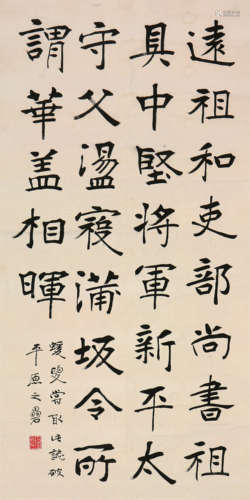 遠祖和吏部尚書祖
具中堅將軍新平太
守父盪寇蒲坂令所
謂華蓋相暉
蝯叟嘗取此誌破
平原之壘